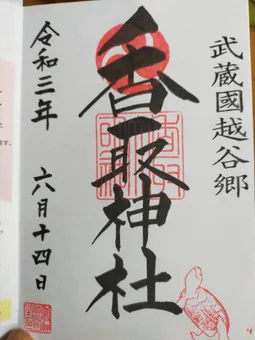 武蔵國越谷郷
香取神社
令和三年 六月十四日